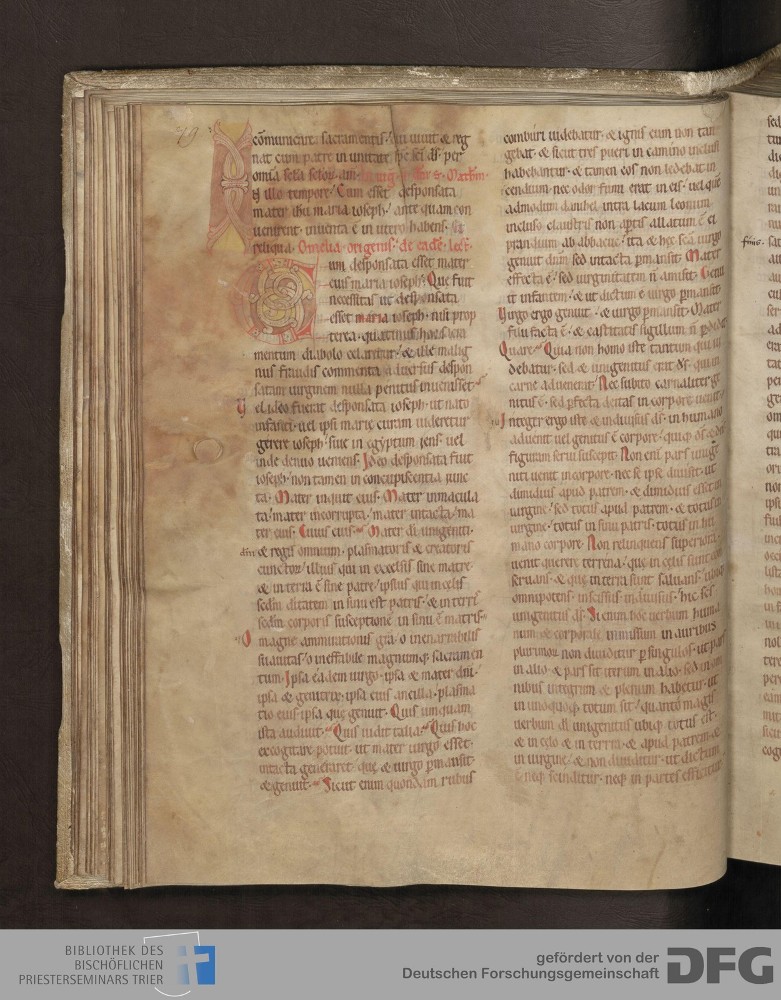 79
cōmunicare sacramentis. qui uiuit & reg
nat cum patre in unitate sp̄c sc̄i d̄s per
omīa sc̄la sc̄loꝝ. am̄.
In illo tempore. Cum esset desponsata
mater ih̄u maria ioseph. ante quam con
uenirent. inuenta ē in utero habens.
reliqua. Omelia origenis. de eadē. lecť.
Cum desponsata esset mater
eius maria ioseph. Que fuit
necessitas ut desponsata
esset maria ioseph. nisi prop
terea. quatinus hoc sacra
mentum diabolo celaretur. & ille malig
nus fraudis commenta aduersus despon
satam uirginem nulla penitus inuenisset.
Vel ideo fuerat desponsata ioseph. ut nato
infanti. uel ipsi marie curam uideretur
gerere ioseph. siue in egyptum iens. uel
inde denuo ueniens. Ideo desponsata fuit
ioseph. non tamen in concupiscentia iunc
ta. Mater inquit eius. Mater inmacula
ta. mater incorrupta. mater intacta. ma
ter eius. Cuius eius. Mater di unigeniti.
dn̄i & regis omnium. plasmatoris & creatoris
cunctoꝝ. illius qui in excelsis sine matre.
& in terra ē sine patre. ipsius qui in celis
scdm̄ ditatem in sinu est patris. & in terris
scdm̄ corporis susceptionē in sinu ē matris.
O magne ammirationis gr̄a. o inenarrabilis
suauitas. o ineffabile magnumq; sacramen
tum. Ipsa eadem uirgo. ipsa & mater dn̄i.
ipsa & genitrix. ipsa eius ancilla. plasma
tio eius. ipsa que genuit. Quis umquam
ista audiuit. Quis uidit talia. Quis hoc
excogitare potuit. ut mater uirgo esset.
intacta generaret. que & uirgo pmansit.
& genuit. Sicut enim quondam rubus
comburi uidebatur. & ignis eum non tan
gebat. & sicut tres pueri in camino inclusi
habebantur. & tamen eos non ledebat in
cendium. nec odor fumi erat in eis. uel que
admodum danihel intra lacum leonum
incluso claustris non aptis allatum ē ei
prandium ab abbacuc. ita & hec sc̄a uirgo
genuit dn̄m. sed intacta pmansit. Mater
effecta ē. sed uirginitatem n̄ amisit. Genu
it infantem. & ut dictum ē uirgo pmansit.
Virgo ergo genuit. & uirgo pmansit. Mater
filii facta ē. & castitatis sigillum n̄ pdidit.
Quare. Quia non homo iste tantum qui ui
debatur. sed & unigenitus erat d̄s. qui in
carne aduenerat. Nec subito carnaliter ge
nitus ē. sed pfecta deitas in corpore uenit.
Integer ergo iste & indiuisus d̄s. in humano
aduenit uel genitus ē corpore.
figuram serui suscepit. Non enī pars unige
niti uenit in corpore. nec se ipse diuisit. ut
dimidius apud patrem. & dimidius esset in
uirgine. sed totus apud patrem. & totus in
uirgine. totus in sinu patris. totus in hu
mano corpore. Non relinquens superiora.
uenit querere terrena. que in celis sunt con
seruans. & que in terra sunt saluans. ubiq;
omnipotens. inscissus. indiuisus. hic sc̄s
unigenitus d̄i. Si enim hoc uerbum huma
num & corporale inmissum in auribus
plurimoꝝ non diuiditur p singulos. ut pars
in alio. & pars sit iterum in alio. sed in om
nibus integrum & plenum habetur. ut
in unoquoq; totum sit. quanto magis
uerbum d̄i unigenitus ubiq; totus est.
& in celo & in terra. & apud patrem &
in uirgine. & non diuiditur. ut dictum
ē. neq; scinditur. neq; in partes efficitur
BIBLIOTHEK DES
BISCHÖFLICHEN
PRIESTERSEMINARS TRIER
gefördert von der
Deutschen Forschungsgemeinschaft
DFG